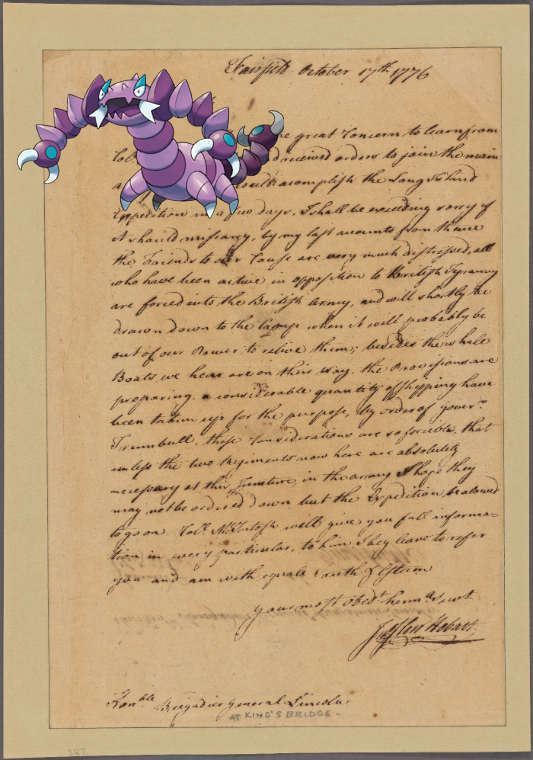 Fairfield October 17th 1776
great Concern to learn from
Col. received orders to join the main
a could accomplish the Long Island
Expedition in a few days, I shall be exceeding sorry if
it should miscarry, by my last accounts from thence
the Friends to our Cause are very much distressed, all
who have been active in opposition to British Tyranny
are forced into the British Army, and will shortly be
drawn down to the Camp when it will probably be
out of our Power to relieve them; besides the whale
Boats, we hear are on their way, the Provisions are
preparing, a considerable quantity of Shipping have
been taken up for the purpose, by order of Govr.
Trumbull, these Considerations are so forcible, that
unless the two Regiments now here are absolutely
necessary at this Juncture, in the army I hope they
may not be ordered down but the Expedition, be allowed
to go on Coll. will give you full informa-
tion in every particular, to him I beg leave to refer
you and am with equal Truth & Esteem
your most Obedt. humle. Servt.
Hobart
Honble Brigadier General Lincoln
AT KING'S BRIDGE -